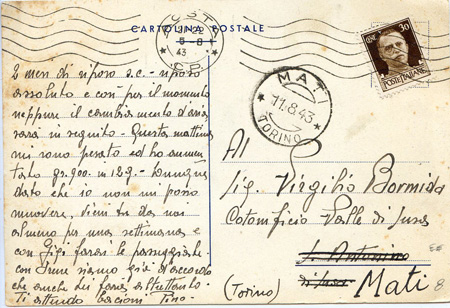 CARTOLINA POSTALE
AUGUSTA
9-8
43
C.P.
CENT. 30
POSTE ITALIANE
MATI
11.8.43
TORINO
2 mesi di riposo s.c. - riposo
assoluto e così per il momento
neppure il cambiamento d'aria
sarà in seguito - Questa mattina
mi sono pesato ed ho aumen
tato gr. 900 in 12 g. - Dunque
dato che io non mi posso
muovere, vieni tu da noi
almeno per una settimana e
con Gigi farai le passeggiate -
con Irene siamo già d'accordo
che anche lei
Ti attendo bacioni Pino -
Al
Sig. Virgilio Bormida
Cotonificio Valle di Susa
S. Antonino
di Susa
Mati
(Torino)
8